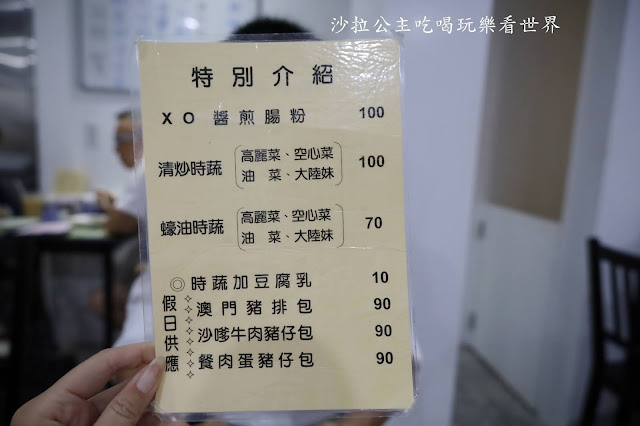 沙拉公主吃喝玩樂看世界
特別介紹
XO 醬煎腸粉 100
清炒時蔬 (高麗菜、空心菜 油菜、大陸妹) 100
蠔油時蔬 (高麗菜、空心菜 油菜、大陸妹) 70
◎時蔬加豆腐乳 10
假日供應
澳門豬排包 90
沙嗲牛肉豬仔包 90
餐肉蛋豬仔包 90